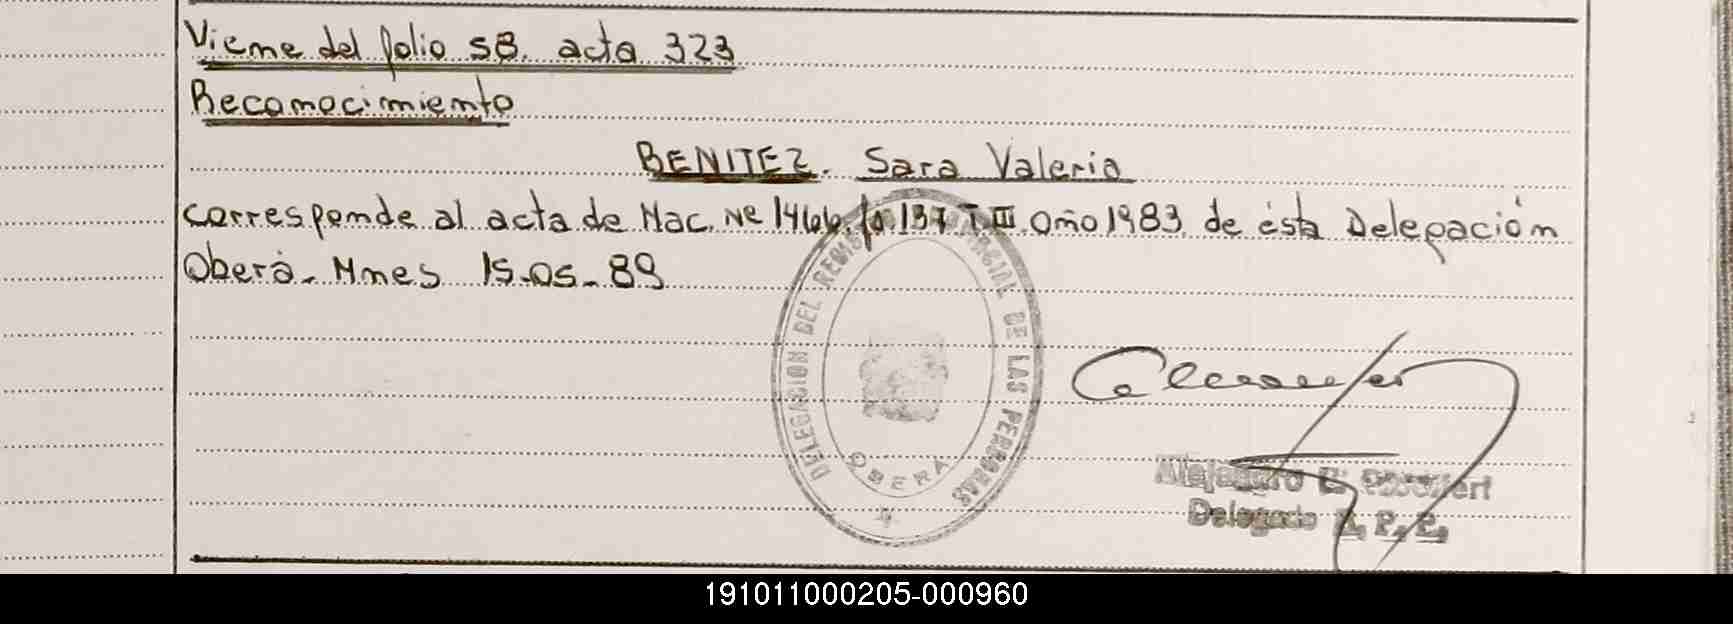 Viene del folio 58. acta 323
Reconocimiento
BENITEZ. Sara Valeria
corresponde al acta de Nac. Nº 1466. fo. 137 T. III. año 1983 de ésta Delegación
Oberá - Mnes 15-05-89
DELEGACION DEL REGISTRO PROVINCIAL DE LAS PERSONAS
OBERA
Delegado R. P. P.
191011000205-000960